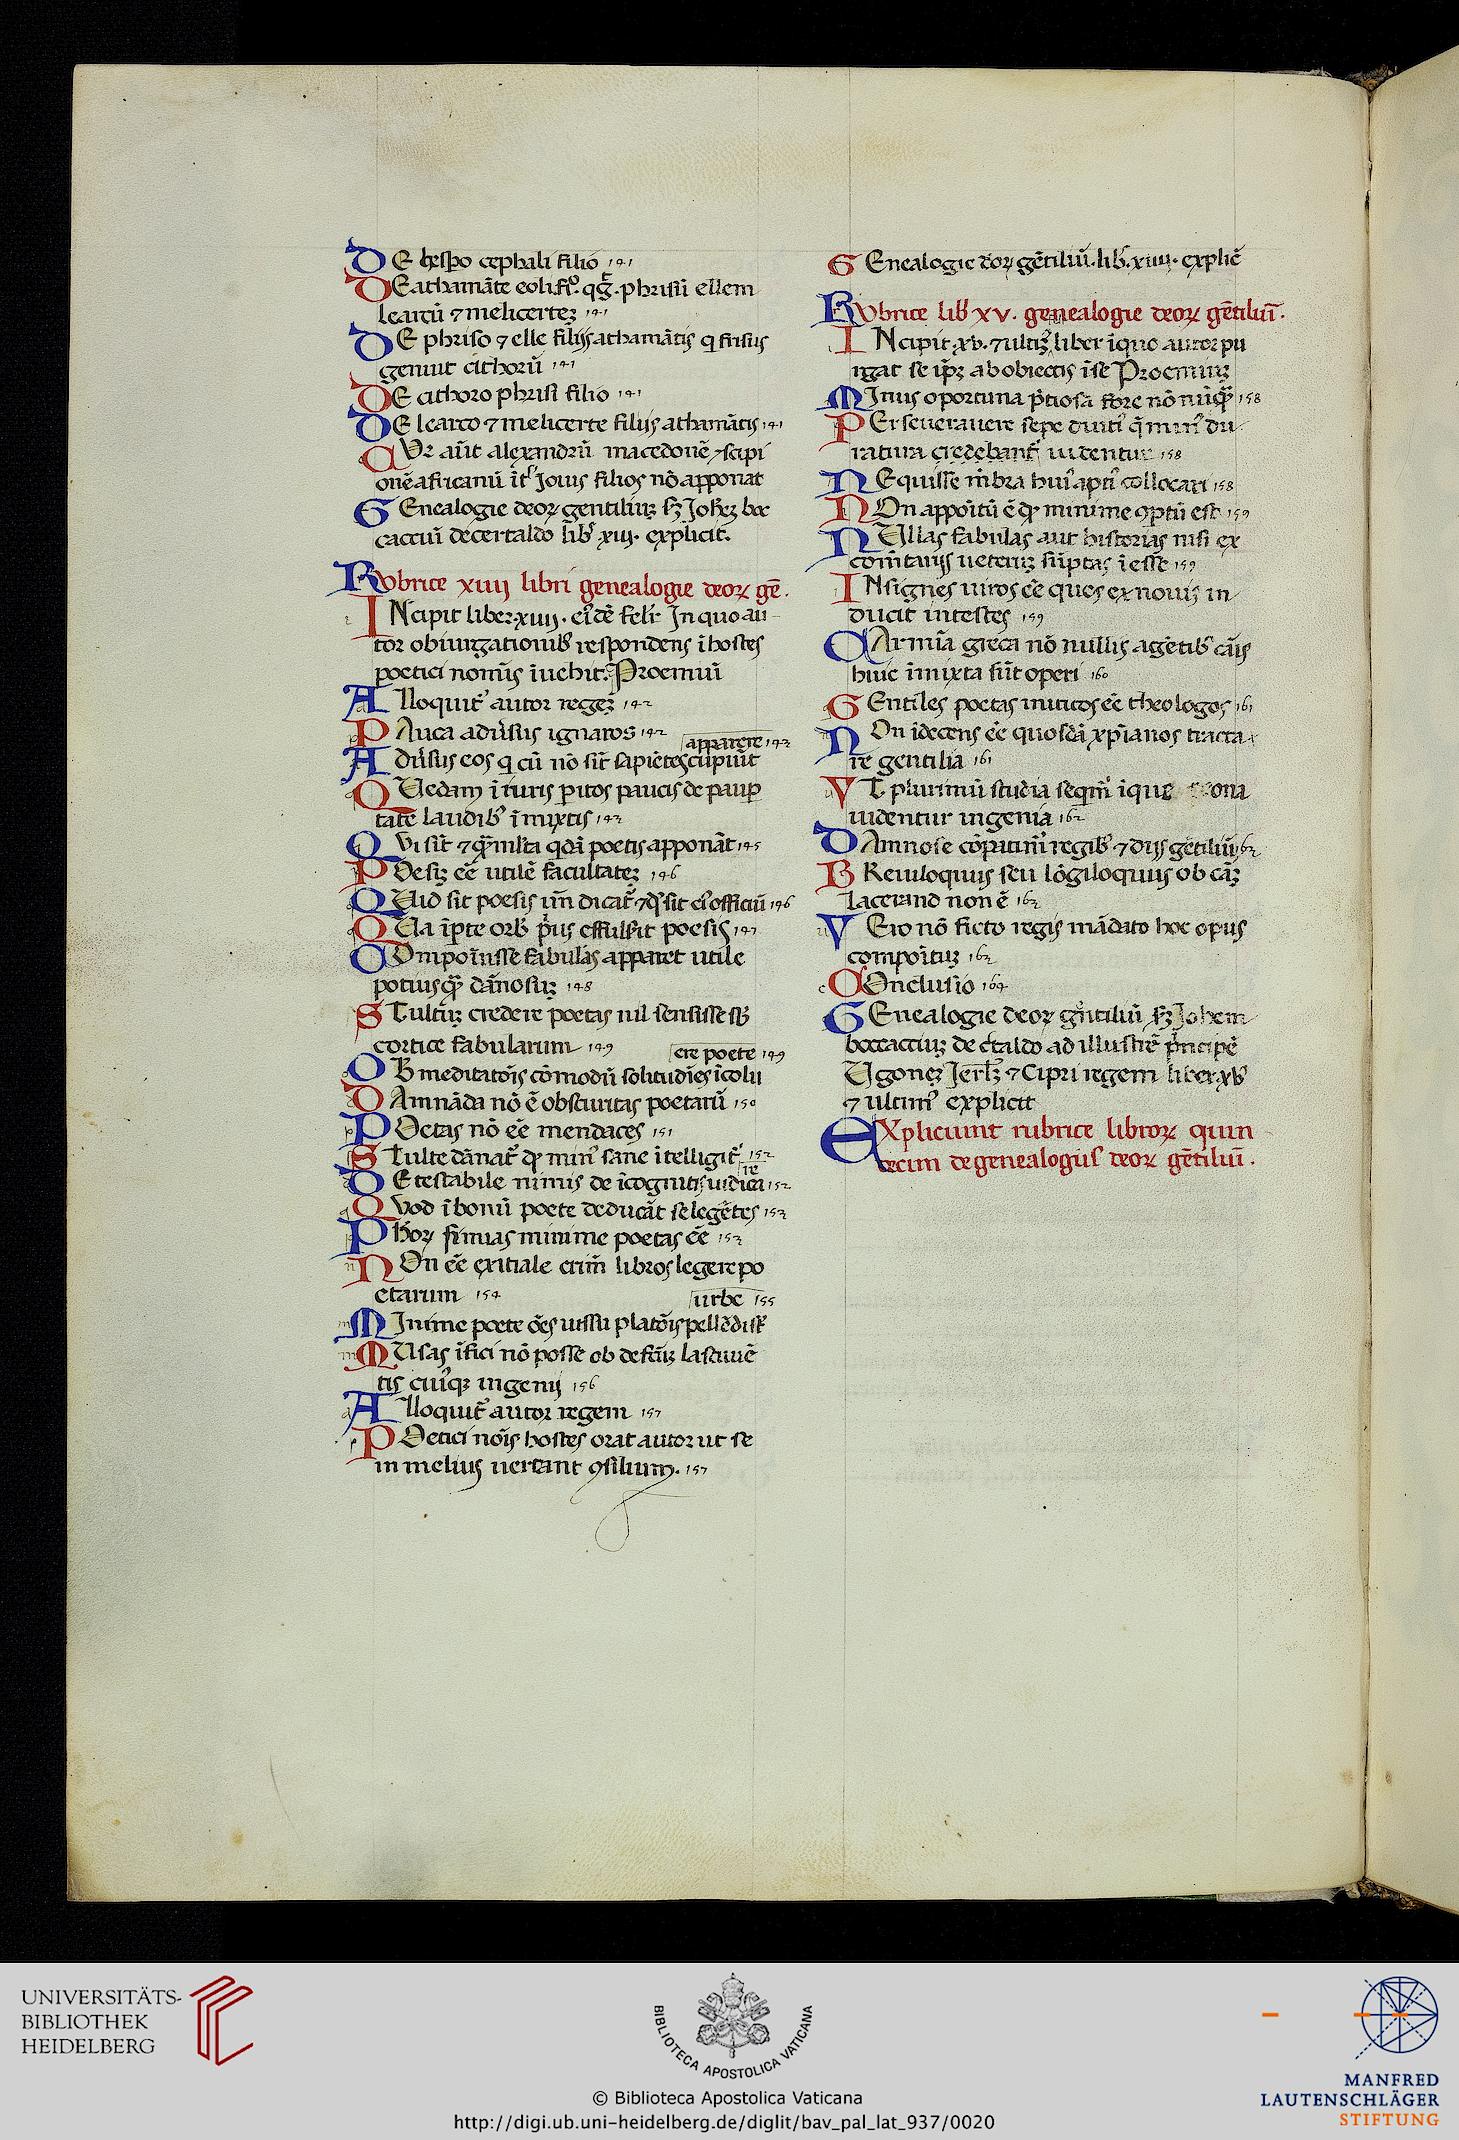 DE hespo cephali filio 141
DE athamāte eoli. fi⁹. qȝ. g̃. phrisū ellem
learcū ⁊ melicerteȝ 141
DE phriso ⁊ elle filijs athamātis q̃ frisus
genuit cithorū 141
DE cithoro phrisi filio 141
DE learco ⁊ melicerte filijs athamātis 141
CVr aūt alexandrū macedonē ⁊ scipi
onē africanū īt̃ Jouis filios nō apponat
GEnealogie deoꝝ gentiliuȝ ẜȝ Joh̃eȝ boc
cacciū de certaldo lib̃ xiij. explicit.
Rubrice xiiij libri genealogie deoꝝ gē.
INcipit liber. xiiij. eiꝰdē felr̃ In quo au
tor obiurgationibꝰ respondens ī hostes
poetici nomīs īuehit. Proemiū
ALloquit̃ autor regeȝ 142
PAuca adũsus ignaros 142
ADũsus eos q̃ cū nō sīt sapiētes cupiūt
apparere 142
QUedam ī iuris peritos paucis de pauꝑ
tate laudibꝰ īmixtis 142
QVi sīt ⁊ q̃ mĺta qdā poetis apponāt 145
POesiȝ eē utilē facultateȝ 146
QUid sit poesis un̄ dicat̃ ⁊ qd̃ sit eiꝰ officiū 146
QUa īꝑte orbꝰ pꝰius effulserit poesis 147
COmpoīsse fabulas apparet utile
potiusq̃ȝ dānosuȝ 148
STultuȝ credere poetas nil sensisse sb̃
cortice fabularum 149
OB meditatōis cōmodū solitudīes īcolu
ere poete 149
DAmnāda nō ē obscuritas poetarū 150
POetas nō eē mendaces 151
STulte dānat̃ qd̃ minꝰ sane ītelligit̃ 152
DEtestabile nimis de īcognitis iudica
re 152
QVod ī bonū poete deducāt se legētes 152
PHoꝝ simias minime poetas eē 153
NOn eē exitiale crim̄ libros legere po
etarum 154
MInime poete oēs iussu platōis pellēdi sūt
urbe 155
MUsas īfici nō posse ob defcm̄ lasciuiē
tis cuiꝰqȝ ingenij 156
ALloquit̃ autor regem 157
POetici nōis hostes orat autor ut se
in melius uertant ꝯsilium. 157
GEnealogie deoꝝ gētiliū. lib̃. xiiij. explic̃
Rubrice lib̃ xv. genealogie deoꝝ gētiliū.
INcipit. xv. ⁊ ultiȝ liber ī quo autor pu
rgat se ip̃ȝ ab obiectis ī se Proemiuȝ
MInus oportuna p̃tiosa fore nō nūq̃ȝ 158
PErseuerauere sepe diuitꝰ q̃ minꝰ du
ratura credebant̃ uidentur 158
NEquisse mēbra huiꝰ aptiꝰ collocari 158
NOn appoītū ē qd̃ minime ꝯptū est 159
NUllas fabulas aut historias nisi ex
cōmtarijs ueteruȝ sūptas ī esse 159
INsignes uiros eē ques ex nouis in
ducit in testes 159
CArmīa greca nō nullis agētibꝰ cāis
huic īmixta sūt operi 160
GEntiles poetas miticos eē theologos 161
NOn īdecens eē quosdā xp̄ianos tracta
re gentilia 161
VT plurimū studia seqm̃ ī que
uidentur ingenia 162
DAmnose cōpatimꝰ regibꝰ ⁊ dijs gētiliū 162
BReuiloquijs seu lōgiloquijs ob cāȝ
lacerand non ē 162
VEro nō ficto regis mādato hoc opus
compoituȝ 162
COnclusio 164
GEnealogie deoꝝ gētiliū ẜȝ Johem
boccacciuȝ de ctaldo ad illustrē p̃ncipē
Ugoneȝ Jerlȝ ⁊ Cipri regem liber. xv
⁊ ultimꝰ explicit
EXpliciunt rubrice libroꝝ quin
decim de genealogijs deoꝝ gētiliū.
UNIVERSITÄTS-
BIBLIOTHEK
HEIDELBERG
BIBLIOTECA APOSTOLICA VATICANA
© Biblioteca Apostolica Vaticana
http://digi.ub.uni-heidelberg.de/diglit/bav_pal_lat_937/0020
MANFRED
LAUTENSCHLÄGER
STIFTUNG